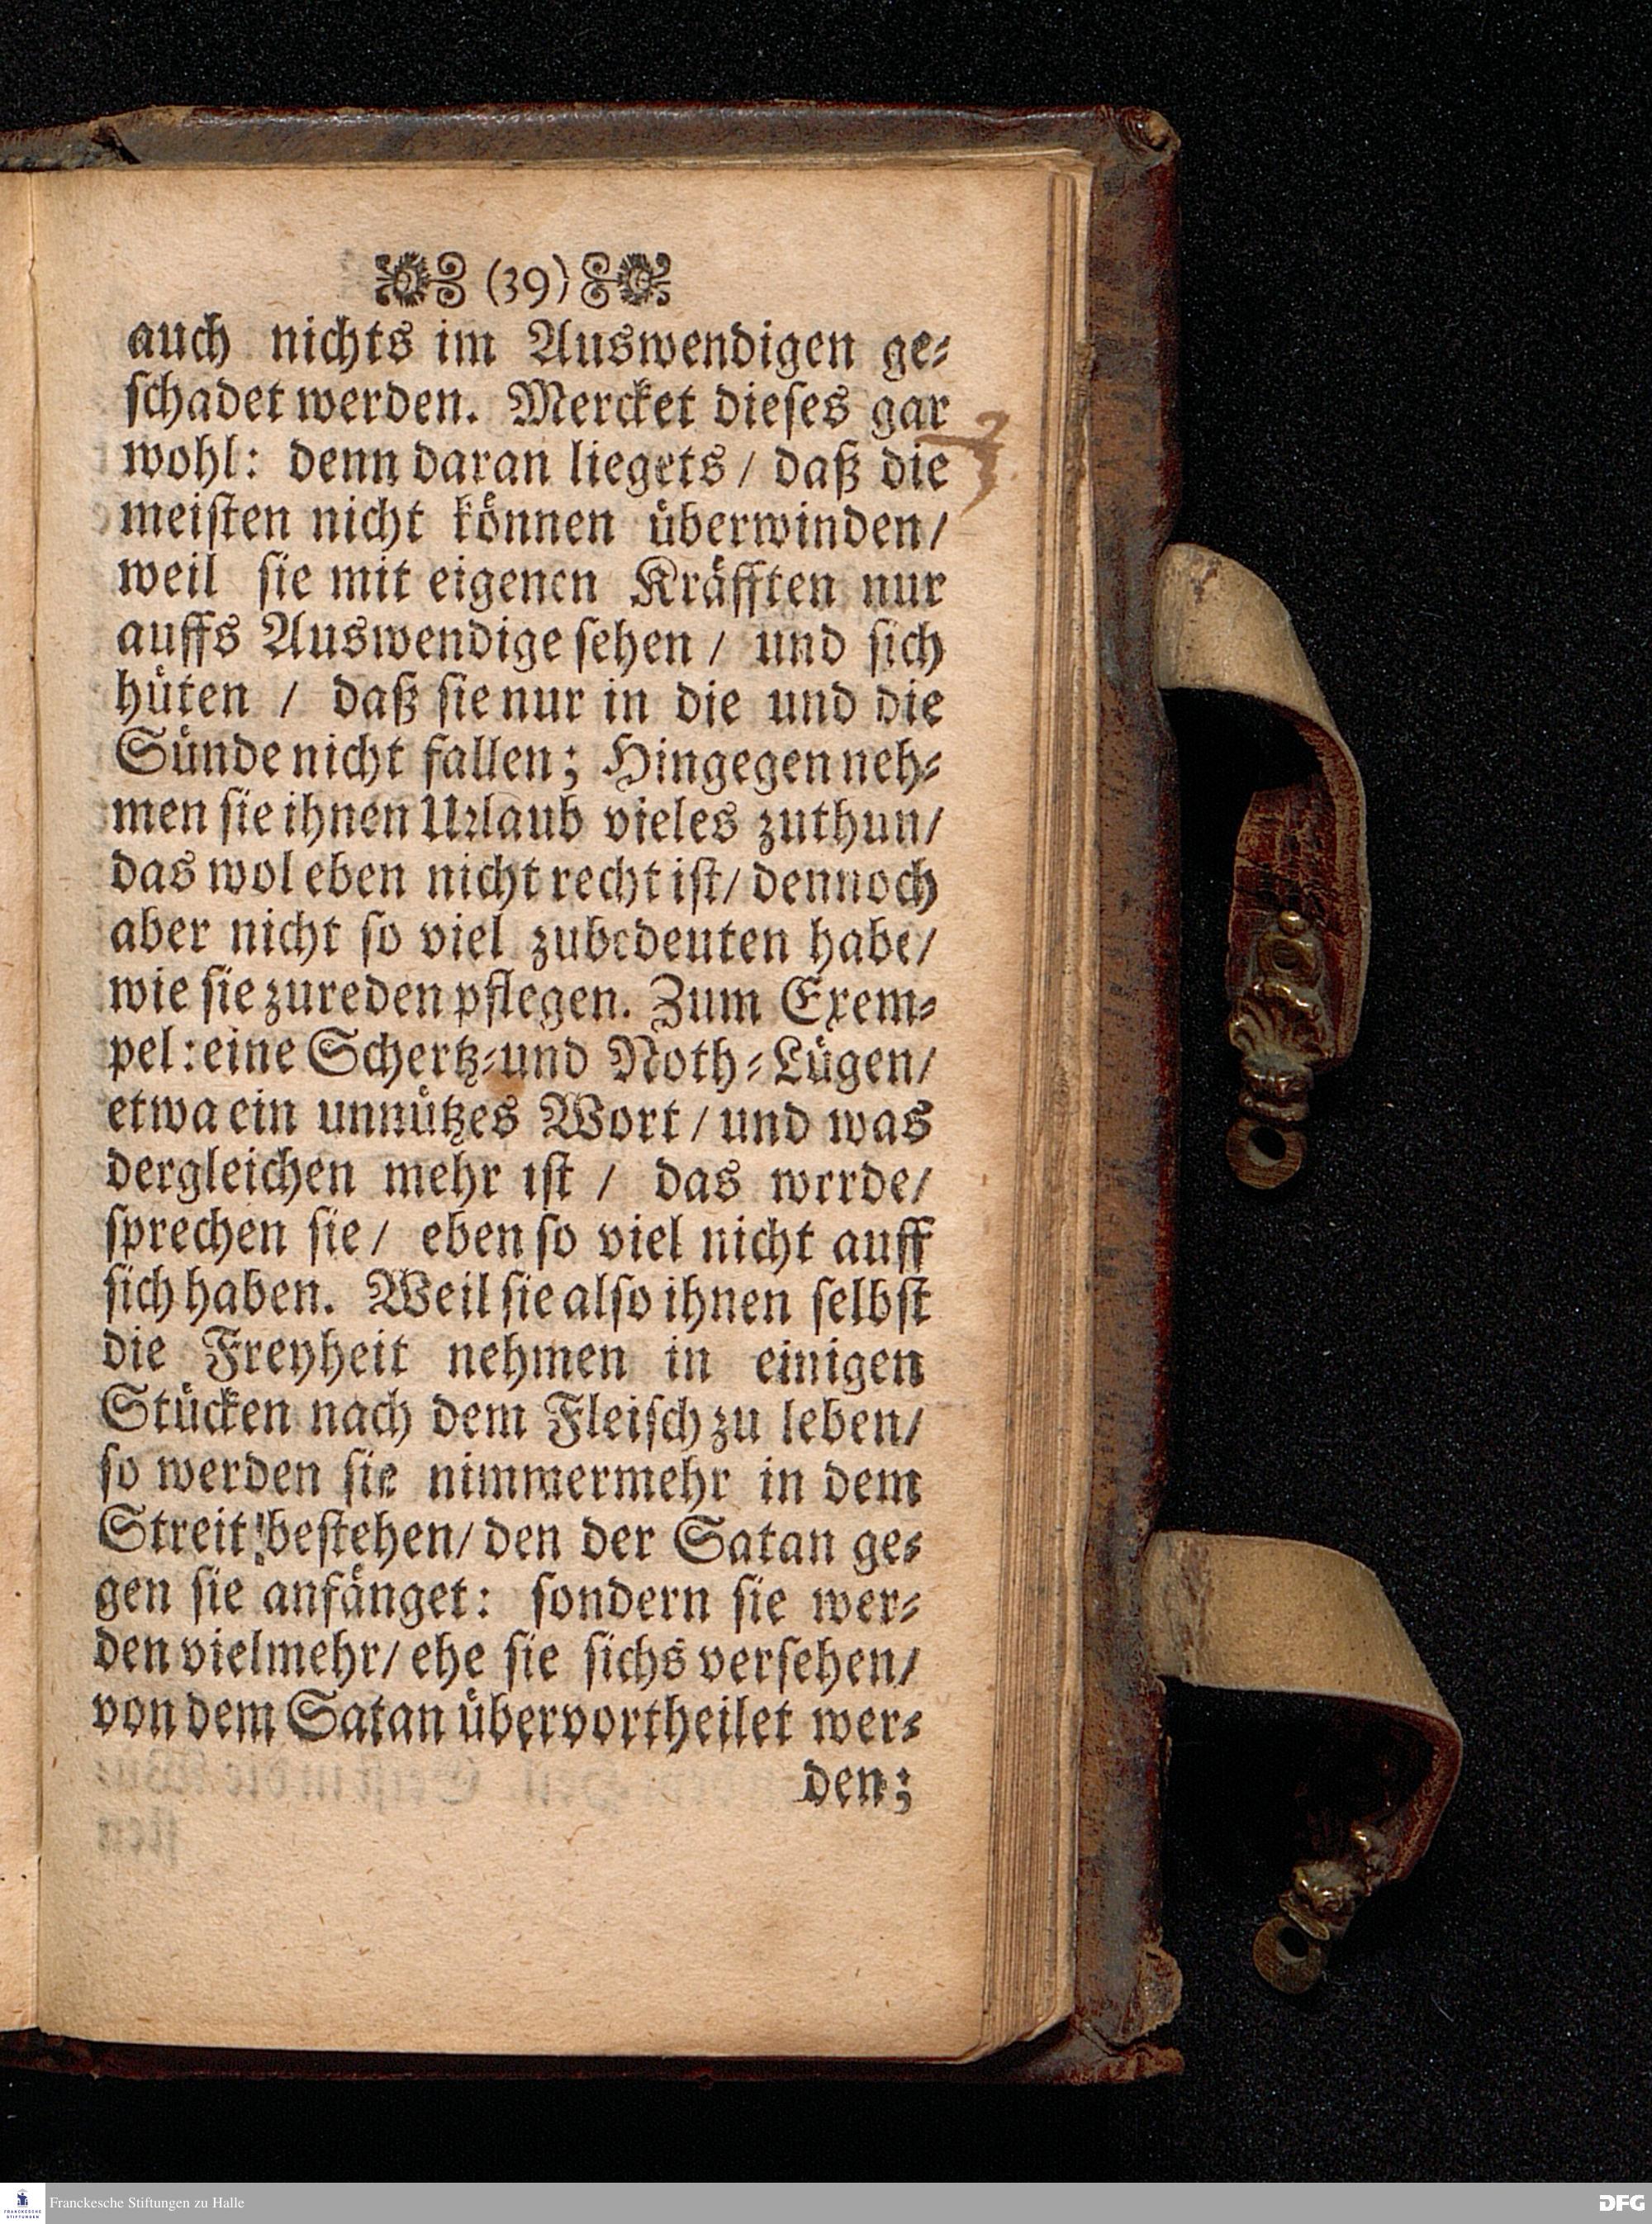 (39)
auch nichts im Auswendigen ge⸗
ſchadet werden. Mercket dieſes gar
wohl: denn daran liegets / daß die
meiſten nicht können überwinden/
weil ſie mit eigenen Kräfften nur
auffs Auswendige ſehen / und ſich
hüten / daß ſie nur in die und die
Sünde nicht fallen; Hingegen neh⸗
men ſie ihnen Urlaub vieles zuthun/
das wol eben nicht recht iſt/ dennoch
aber nicht ſo viel zubedeuten habe/
wie ſie zureden pflegen. Zum Exem⸗
pel: eine Schertz⸗und Noth⸗Lügen/
etwa ein unnützes Wort / und was
dergleichen mehr iſt / das werde/
ſprechen ſie / eben ſo viel nicht auff
ſich haben. Weil ſie alſo ihnen ſelbſt
die Freyheit nehmen in einigen
Stücken nach dem Fleiſch zu leben/
ſo werden ſie nimmermehr in dem
Streit beſtehen/ den der Satan ge⸗
gen ſie anfänget: ſondern ſie wer⸗
den vielmehr/ ehe ſie ſichs verſehen/
von dem Satan übervortheilet wer⸗
den;
Franckesche Stiftungen zu Halle
FRANCKESCHE
STIFTUNGEN
DFG